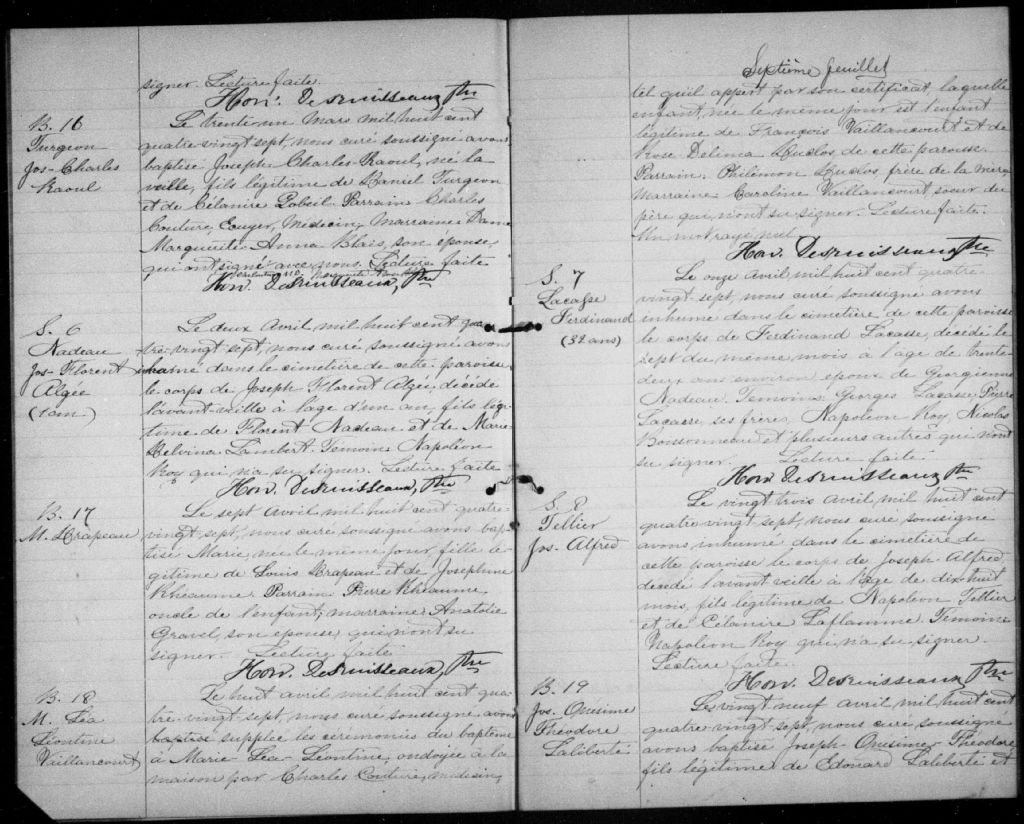 signer. Lecture faite.
Hon. Desruisseaux, Ptre
B. 16
Turgeon
Jos-Charles
Raoul
Le trente-un Mars mil huit cent
quatre vingt sept, nous curé soussigné avons
baptisé Joseph-Charles-Raoul, né la
veille, fils légitime de Daniel Turgeon
et de Célanire Dobeil. Parrain Charles
Couture, Ecuyer, Médecin, Marraine Dame
Marguerite-Anna Blais, son épouse,
qui ont signé avec nous. Lecture faite
Hon. Desruisseaux, Ptre
S. 6
Nadeau
Jos-Florent
Algée
(1 an)
Le deux Avril mil huit cent qua-
tre-vingt sept, nous curé soussigné avons
inhumé dans le cimetière de cette paroisse
le corps de Joseph Florent Algée, décédé
l'avant-veille à l'age d'un an, fils légi-
time de Florent Nadeau et de Marie
Delvina Lambert. Témoin Napoléon
Roy qui n'a su signer. Lecture faite
Hon. Desruisseaux, Ptre
B. 17
M. Drapeau
Le sept Avril mil huit cent quatre-
vingt sept, nous curé soussigné avons bap-
tisé Marie née le même jour fille lé-
gitime de Louis Drapeau et de Josephine
Rhéaume. Parrain Pierre Rhéaume
oncle de l'enfant, marraine Anatolie
Gravel, son epouse, qui n'ont su
signer. Lecture faite
Hon. Desruisseaux, Ptre
B. 18
M. Léa
Léontine
Vaillancourt
Le huit avril mil huit cent qua-
tre-vingt sept, nous curé soussigné avons
baptisé supplée les cérémonies du baptême
à Marie-Léa-Léontine, ondoyée à la
maison par Charles Couture, médecin,
Septième feuillet
tel qu'il appert par son certificat, laquelle
enfant, née le même jour est l'enfant
légitime de François Vaillancourt et de
Rose-Delima Duclos de cette paroisse.
Parrain, Philémon Duclos frère de la mère,
marraine Caroline Vaillancourt, soeur du
père qui n'ont su signer. Lecture faite.
Un mot rayé nul
Hon. Desruisseaux Ptre
S. 7
Lacasse
Ferdinand
(32 ans)
Le onze Avril mil huit cent quatre-
vingt sept, nous curé soussigné avons
inhumé dans le cimetière de cette paroisse
le corps de Ferdinand Lacasse, décédé le
sept du même mois à l'âge de trente-
deux ans environ époux de Georgienne
Nadeau. Témoins Georges Lacasse Pierre
Lacasse, ses frères, Napoléon Roy Nicolas
Boissonneau et plusieurs autres qui n'ont
su signer. Lecture faite.
Hon. Desruisseaux Ptre
S. 8
Tellier
Jos-Alfred
Le vingt trois Avril mil huit cent
quatre vingt sept, nous curé soussigné
avons inhumé dans le cimetière de
cette paroisse le corps de Joseph Alfred
décédé l'avant veille à l'âge de dix-huit
mois, fils légitime de Napoléon Tellier
et de Célanire Laflamme. Témoin
Napoléon Roy qui n'a su signer.
Lecture faite.
Hon. Desruisseaux Ptre
B. 19
Jos. Onesime
Théodore
Laliberté
Les vingt neuf avril mil huit cent
quatre-vingt sept, nous curé soussigné
avons baptisé Joseph-Onesime-Théodore,
fils légitime de Edouard Laliberté et